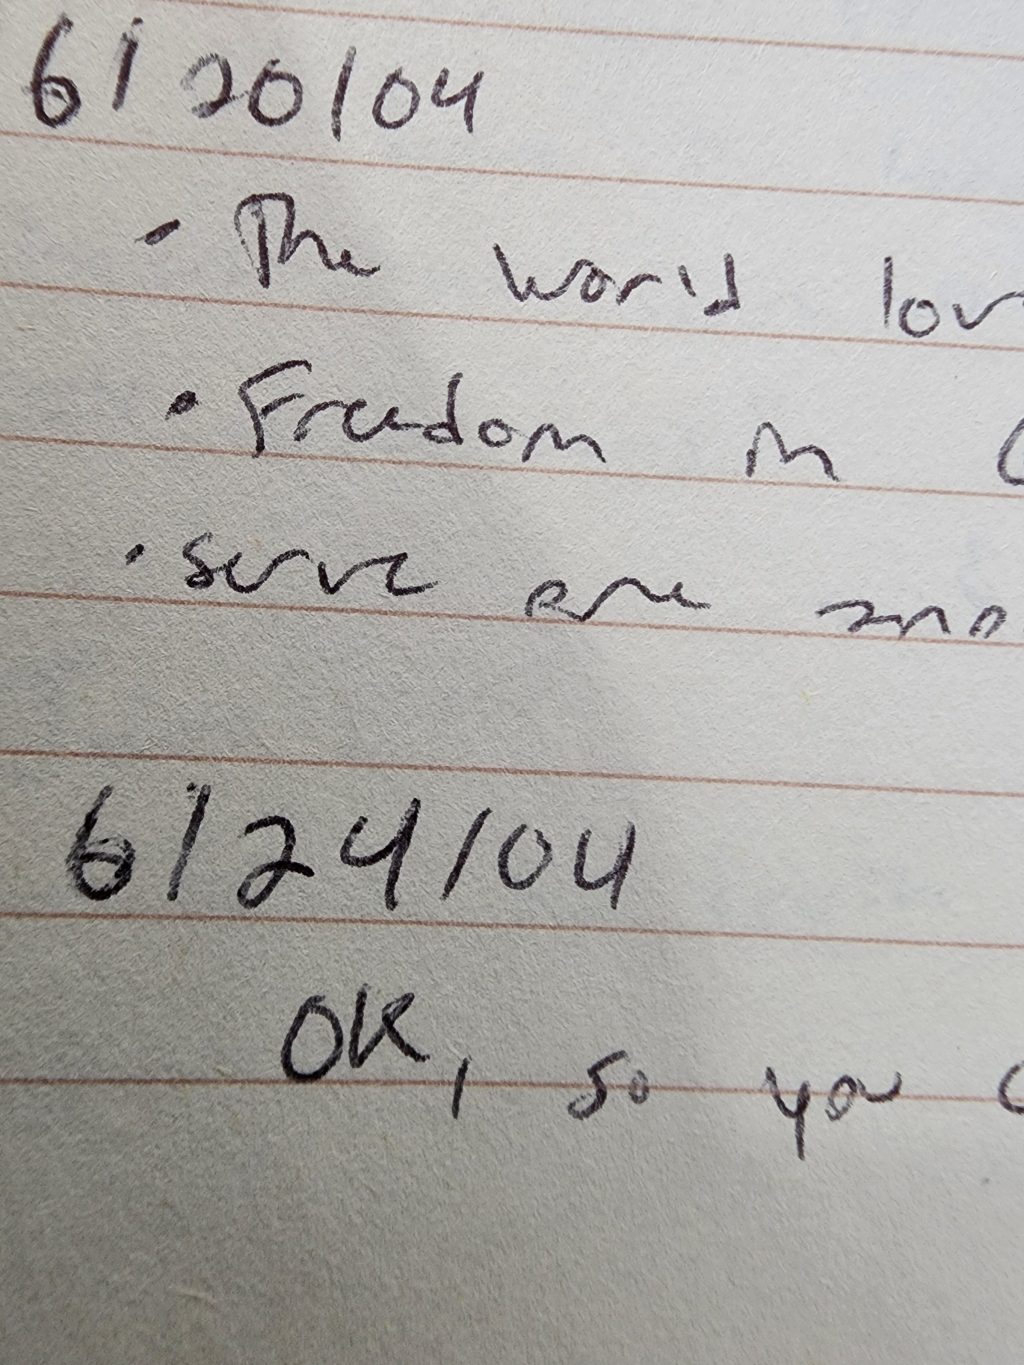 6/20/04
• The world lov
• Freedom in C
• serve one ano
6/24/04
OK, so you c